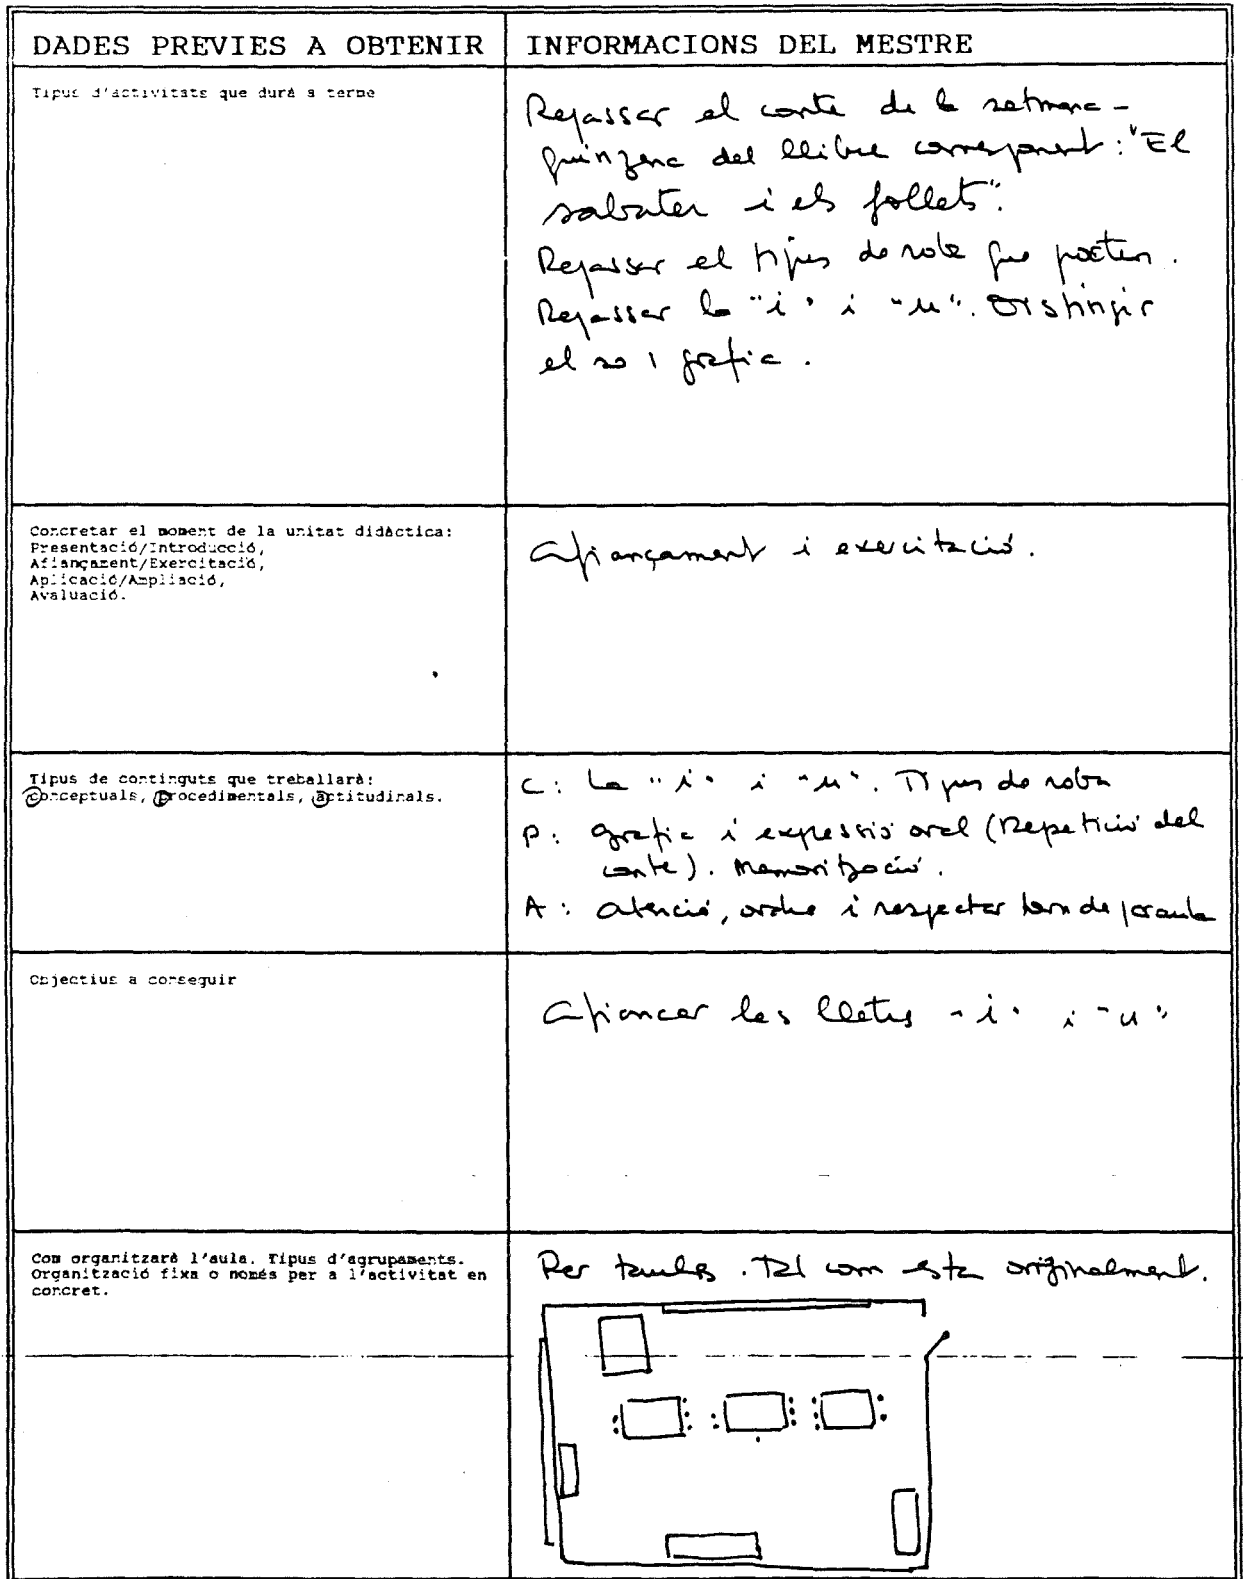 DADES PREVIES A OBTENIR
INFORMACIONS DEL MESTRE
Tipus d'activitats que durà a terme
Repassar el conte de la setmana -
quinzena del llibre corresponent: "El
sabater i els follets".
Repassar el tipus de roba que porten.
Repassar la "i" i "u". Distingir
el so i grafia.
Concretar el moment de la unitat didàctica:
Presentació/Introducció,
Afiançament/Exercitació,
Aplicació/Ampliació,
Avaluació.
Afiançament i exercitació.
Tipus de continguts que treballarà:
Conceptuals, Procedimentals, actitudinals.
C: La "i" i "u". Tipus de roba
P: Grafia i expressió oral (Repetició del
conte). Memorització.
A: Atenció, ordre i respectar torn de paraula
Objectius a conseguir
Afiançar les lletres "i" i "u"
Com organitzarà l'aula. Tipus d'agrupaments.
Organització fixa o només per a l'activitat en
concret.
Per taules. Tal com esta originalment.